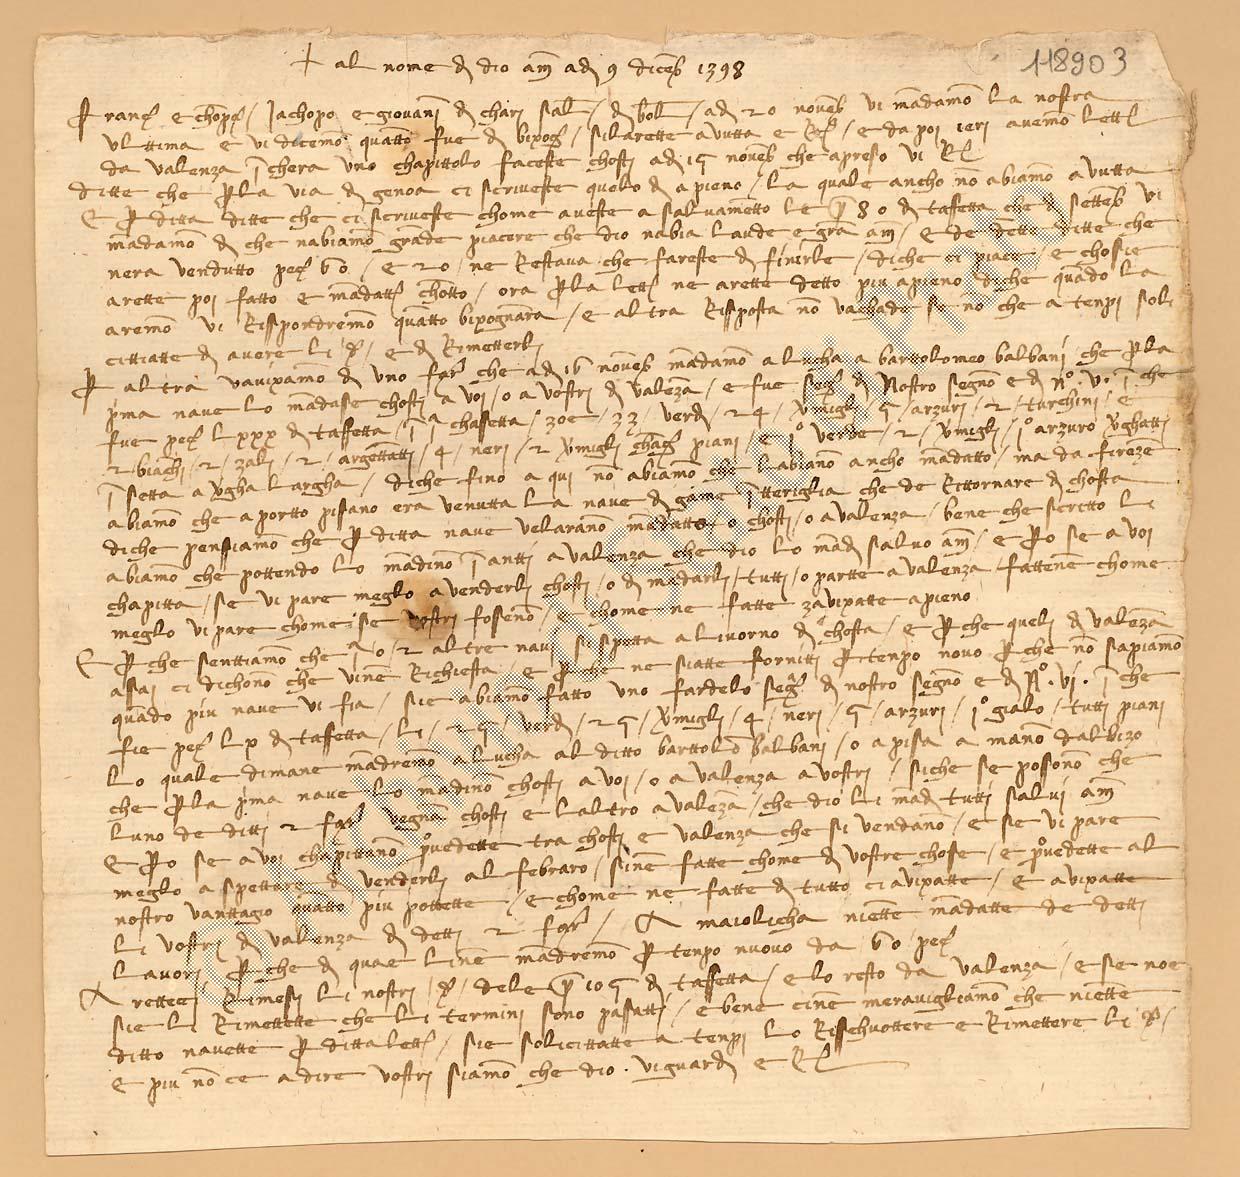 118903
+ al nome di dio am adi 9 diceb 1398
Franc e chop / Jachopo e giovani di chari sal / di bol / adi 20 noveb vi madamo la nostra
ultima e vi dicemo quatto fue di bixog / si l'arette avutta e / e da poi ieri avemo lett
da valenza i chera uno chapittolo faceste chosti adi 15 noveb che apreso vi
ditte che p la via di genoa ci scriveste quelo di a pieno / la quale ancho no abiamo avutta
E p ditta ditte che ci scriveste chome aveste a salvametto le p 80 di taffetta che di setteb vi
madamo di che n'abiamo grade piacere che dio n'abia laude e gra am / e de dette ditte che
n'era vendutto pez 60 / e 20 ne restava che fareste di finirle / di che ci piace / e chosi e
arette poi fatto e madatt chotto / ora p la lett ne arette detto piu apieno di che quado la
aremo vi rispondremo quatto bixognara / e altra risposta no va se no che a tenpi soli
cittiatte di avere li d / e di rimetterli
P altra v'avixamo di uno far che adi 16 noveb madamo a lucha a barttolomeo balbani che p la
p'ma nave lo madase chosti a voi / o a vostri di valeza / e fue seg di nostro segno e di n° v i che
fue pez lxxx di taffetta i chassetta / zoe / 33 verdi / 24 vmigli / 5 arzuri / 2 turchini / e
2 biachi / 2 zali / 2 argettatti / 4 neri / 2 vmigli piani e 1° verde / 2 vmigli / 1° arzuro vghatti
i setta a vgha largha / di che fino a qui no abiamo che l'abiano ancho madatto / ma da fireze
abiamo che a portto pisano era venutta la nave di game itteriglia che de rittornare di chosta
di che pensiamo che p ditta nave ve l'arano madatto o chosti / o a valenza / bene che scritto li
abiamo che pottendo lo madino i antti a valenza che dio lo madi salvo am / e p'o se a voi
chapitta / se vi pare meglo a venderli chosti / o di madarli / tutti / o partte a valenza / fattene chome
meglo vi pare chome se vostri foseno / e chome ne fatte z'avixatte apieno
E p che senttiamo che 1° o / 2 altre navi si spetta a livorno di chosta / e p che queli di valeza
asai ci dichono che vi n'e richiesta / e p che ne siatte fornitti p tenpo novo p che no sapiamo
quado piu nave vi fia / si e abiamo fatto uno fardelo seg di nostro segno e di n° vi i che
fie pez lx di taffetta / li 25 verdi / 25 vmigli / 4 neri / 5 arzuri / 1° gialo / tutti piani
lo quale dimane madremo a lucha al ditto barttolo balbani / o a pisa a mano dalbizo
che p la p'ma nave lo madino chosti a voi / o a valenza a vostri / siche se possono che
l'uno de ditti 2 far vegna chosti e l'altro a valeza / che dio li madi tutti salvi am
e p'o se a voi chapittano p'vedette tra chosti e valenza che si vendano / e se vi pare
meglo aspettare di venderli al febraro / si ne fatte chome di vostre chose / e p'vedette al
nostro vanttagio quatto piu pottette / e chome ne fatte di tutto ci avixatte / e avixatte
li vostri di valenza di detti 2 far / A maiolicha niette madatte de detti
lavori p che di qua e li ne madremo p tenpo nuovo da 60 pez
A rettece rimesi li nostri d / dele p 105 di taffetta / e lo resto da valenza / e se no e
si e li rimettette che li termini sono pasatti / e bene ci ne meravigliamo che niette
ditto n'avette p ditta lett / si e solicittatte a tenpi lo risschuottere e rimettere li d /
e piu no c'e a dire vostri siamo che dio vi guardi e